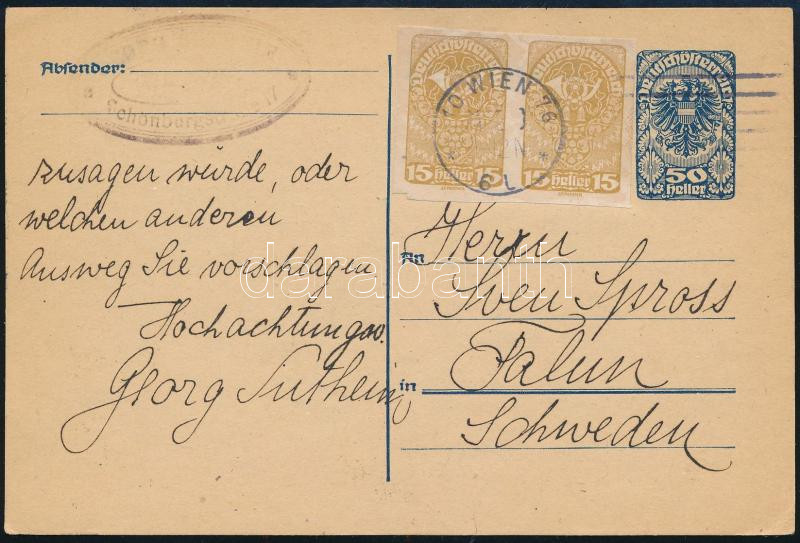 Absender:
Deutschösterreich
Deutschösterreich
Deutschösterreich
WIEN 76
15 Heller 15
15 Heller 15
50
Heller
zusagen würde, oder
welchen anderen
Ausweg Sie vorschlagen
Hochachtungsv.
Georg
An Herrn
Sven Spross
in Falun
Schweden
darabanth.com